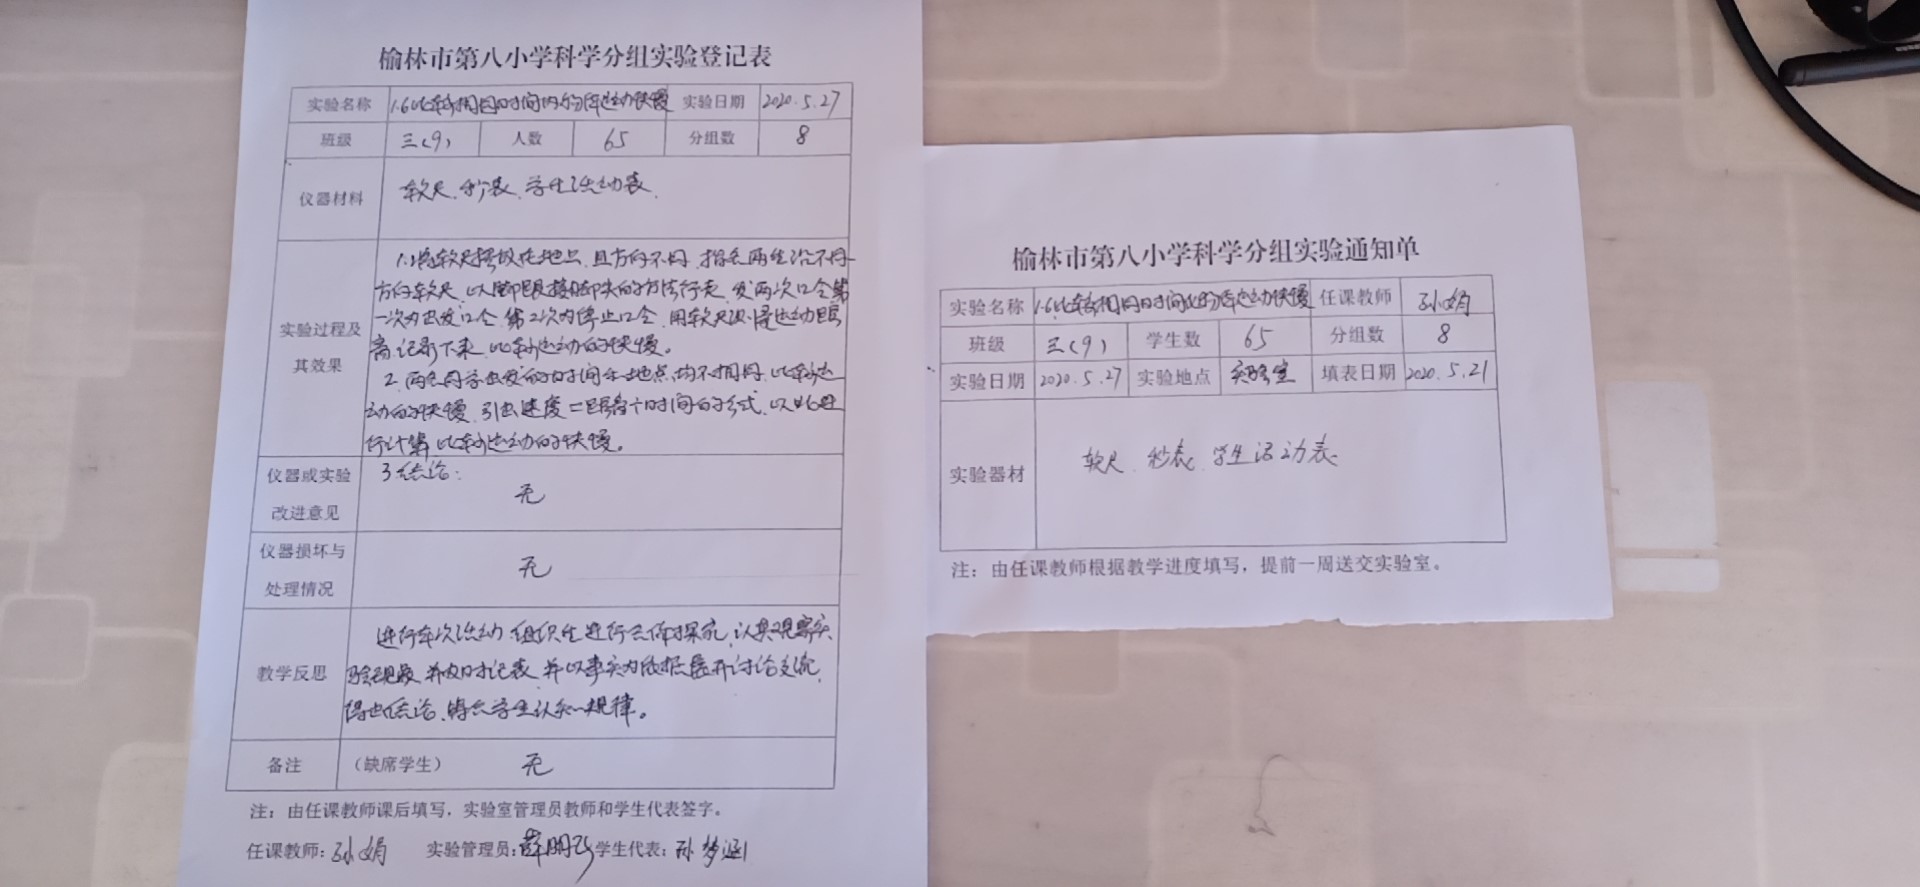 榆林市第八小学科学分组实验登记表
实验名称 1.6比较相同时间内的运动快慢 实验日期 2020.5.27
班级 三(9) 人数 65 分组数 8
仪器材料 软尺、秒表、学生活动表.
实验过程及其效果
1.将软尺摆放在地点、且方向不同,指名两生沿不同
方向软尺,以脚跟接脚尖的方法行走,发两次口令第
一次为出发口令,第2次为停止口令,用软尺测量运动距
离,记录下来,比较运动的快慢。
2.两名同学出发的时间和地点均不相同,比较运
动的快慢,引出速度=距离÷时间的公式,以此进
行计算,比较运动的快慢。
3.结论:
仪器或实验
改进意见 无
仪器损坏与
处理情况 无
教学反思
进行本次活动,组织生进行合作探究,认真观察实
验现象,并及时记表,并以事实为依据展开讨论交流,
得出结论,学生认知规律。
备注 (缺席学生) 无
注:由任课教师课后填写,实验室管理员教师和学生代表签字。
任课教师:孙娟 实验管理员: 学生代表:孙梦涵
榆林市第八小学科学分组实验通知单
实验名称 1.6比较相同时间内的运动快慢 任课教师 孙娟
班级 三(9) 学生数 65 分组数 8
实验日期 2020.5.27 实验地点 实验室 填表日期 2020.5.21
实验器材 软尺、秒表、学生活动表
注:由任课教师根据教学进度填写,提前一周送交实验室。